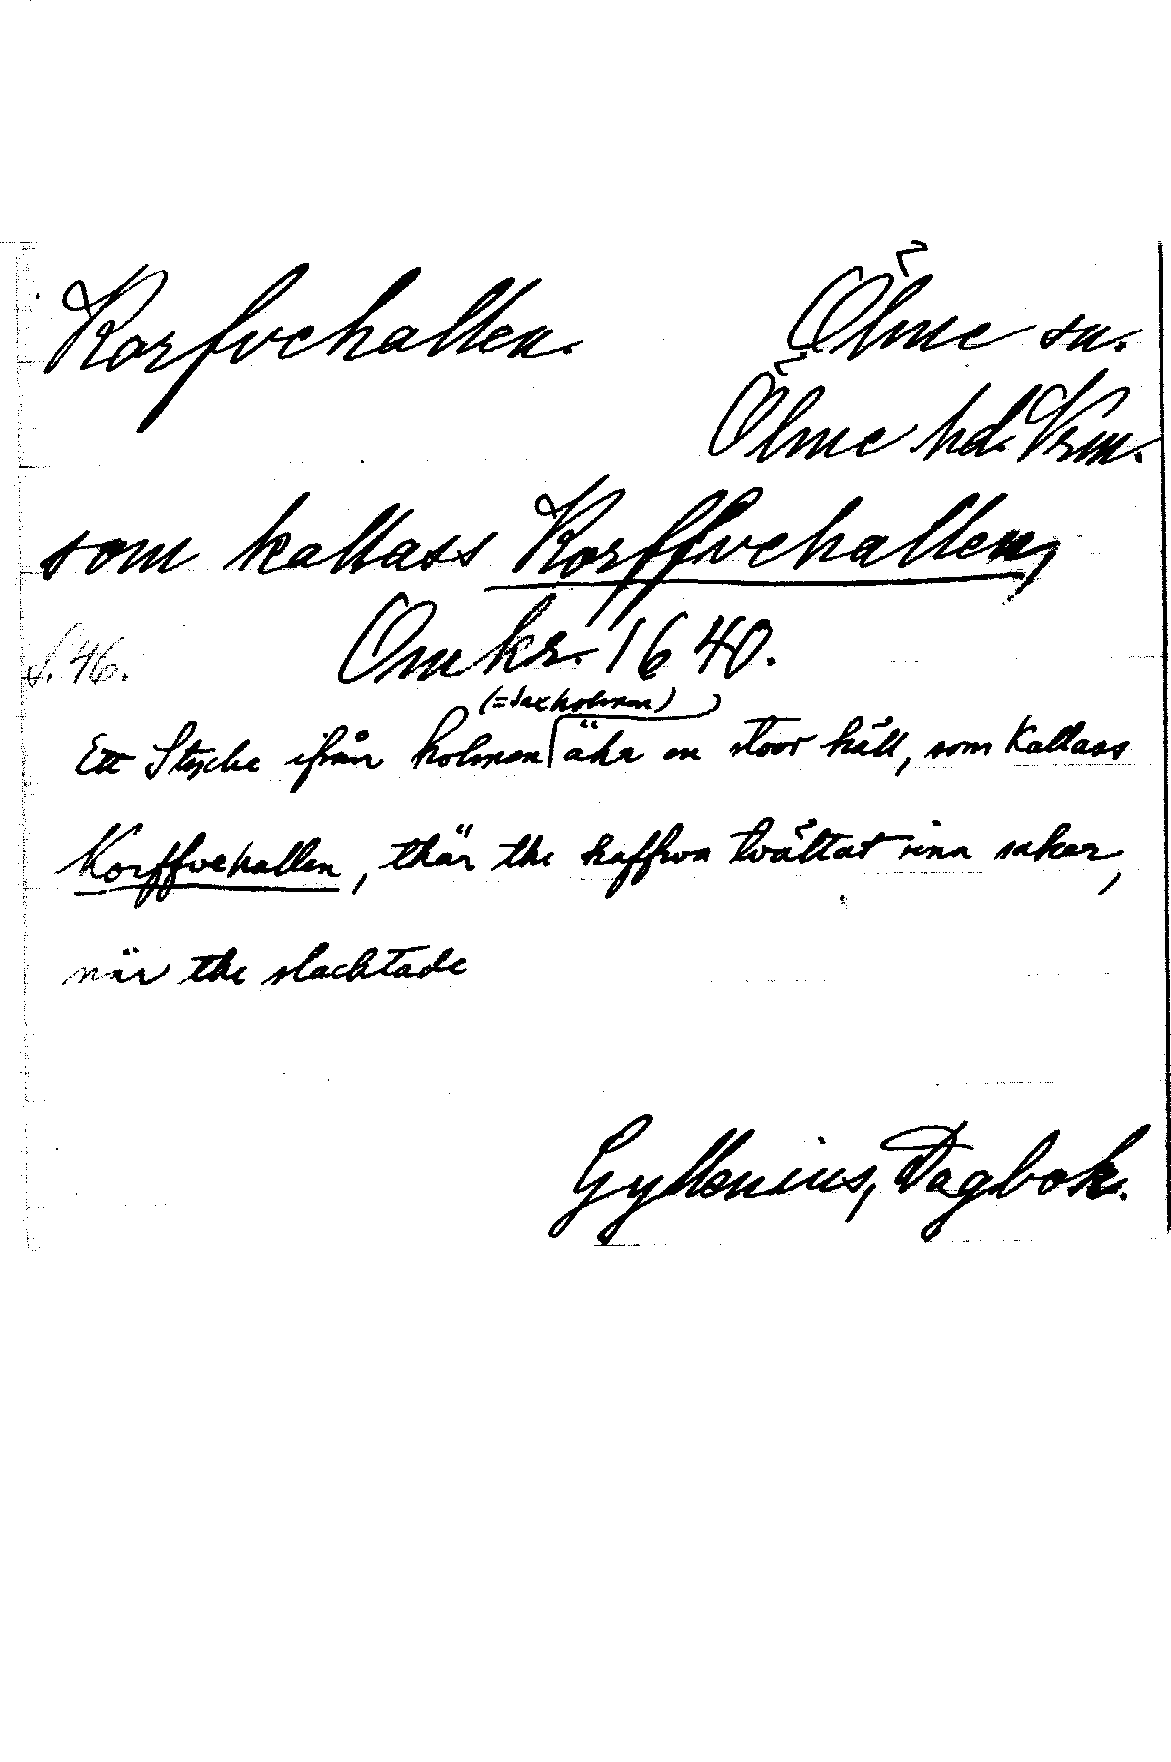 Korfvehallen. Ölme sn.
Ölme hd. Vrm.
som kallass Korffvehallen,
S. 46. Omkr. 1640.
(= Saxholmen)
Ett Stycke ifrån holmen ähr en stoor häll, som Kallass
Korffvehallen, thär the haffva tvättat sina saker,
när the slachtade
Gyllenius, Dagbok.